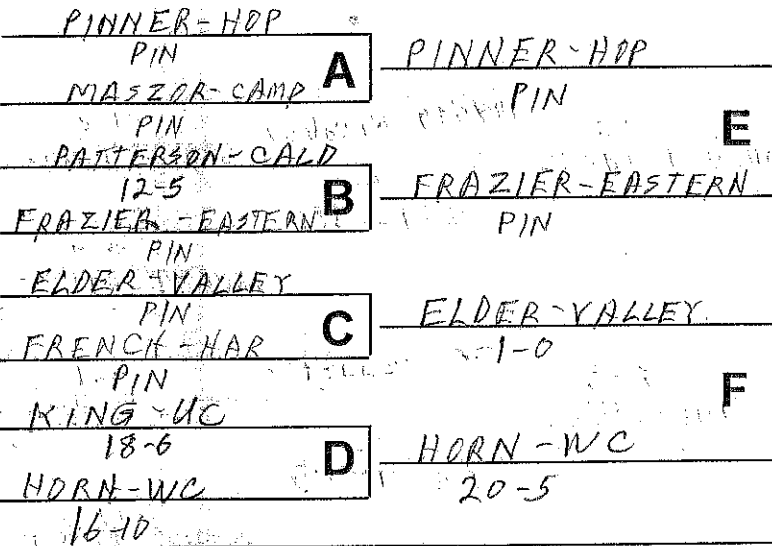 PINNER-HOP
PIN
A
MASZOR-CAMP
PIN
PATTERSON-CALD
12-5
B
FRAZIER-EASTERN
PIN
ELDER-VALLEY
PIN
C
FRENCH-HAR
PIN
KING-UC
18-6
D
HORN-WC
16-10
PINNER-HOP
PIN
E
FRAZIER-EASTERN
PIN
ELDER-VALLEY
1-0
F
HORN-WC
20-5